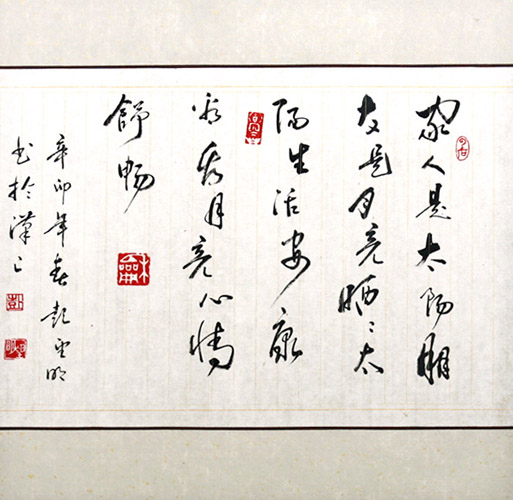 家人是太阳朋
友是月亮晒〻太
阳生活安康
看月亮心情
舒畅
辛卯年春彭明
书於汉上
彭